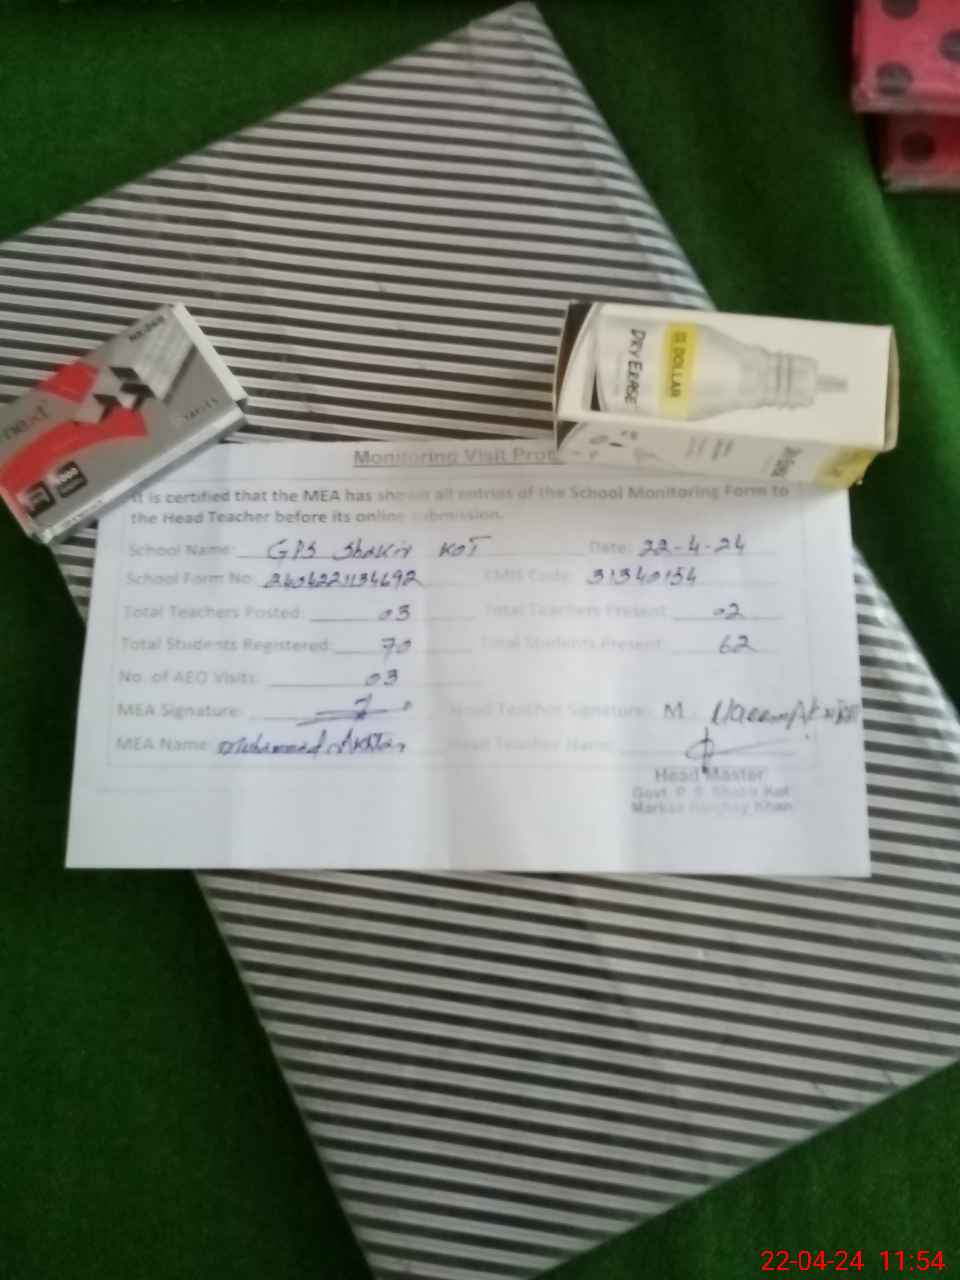 DOLLAR
DRY ERASE
next
1000
Monitoring Visit
It is certified that the MEA has shown all entries of the School Monitoring Form to
the Head Teacher before its online submission.
School Name: GPS Shakir KOT Date: 22-4-24
School Form No: 2404221134692 EMIS Code: 31340154
Total Teachers Posted: 03 Total Teachers Present: 02
Total Students Registered: 70 Total Students Present: 62
No. of AEO Visits: 03
MEA Signature: Head Teacher Signature: M.
MEA Name: Muhammad Akhtar Head Teacher Name:
Head Master
Govt. P. S. Shakir Kot
Markaz Khan
22-04-24 11:54